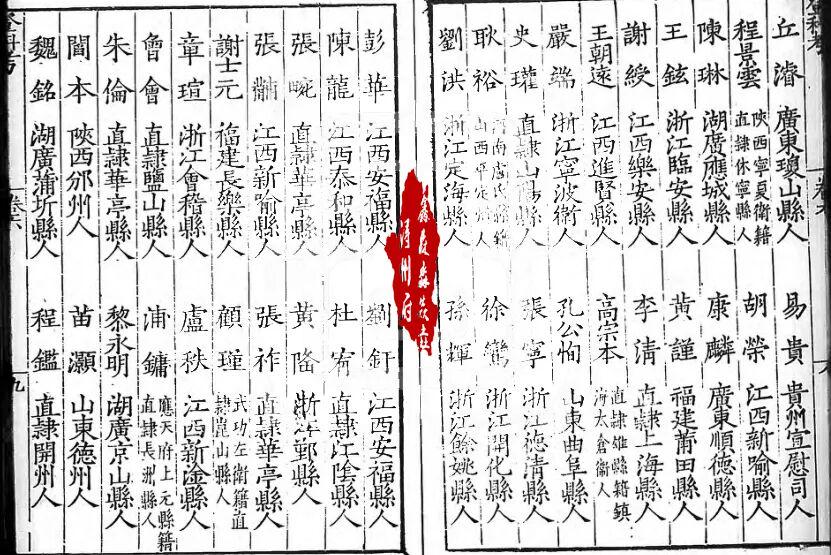 登科考 卷六
丘濬 廣東瓊山縣人 易貴 貴州宣慰司人
程景雲 陝西寧夏衛籍直隸休寧縣人 胡榮 江西新喻縣人
陳琳 湖廣應城縣人 康麟 廣東順德縣人
王鉉 浙江臨安縣人 黃謹 福建莆田縣人
謝綬 江西樂安縣人 李清 直隸上海縣人
王朝遠 江西進賢縣人 高宗本 直隸雄縣籍鎮海太倉衛人
嚴端 浙江寧波衛人 孔公恂 山東曲阜縣人
史瓘 直隸山陽縣人 張寧 浙江德清縣人
耿裕 河南盧氏縣籍山西平定州人 徐鸞 浙江開化縣人
劉洪 浙江定海縣人 孫輝 浙江餘姚縣人
州府
彭華 江西安福縣人 劉釪 江西安福縣人
陳龍 江西泰和縣人 杜宥 直隸江陰縣人
張畹 直隸華亭縣人 黃隆 浙江鄞縣人
張黼 江西新喻縣人 張祚 直隸華亭縣人
謝士元 福建長樂縣人 顧瑾 武功左衛籍直隸崑山縣人
章瑄 浙江會稽縣人 盧秩 江西新淦縣人
會會 直隸鹽山縣人 浦鏞 應天府上元縣籍直隸長洲縣人
朱倫 直隸華亭縣人 黎永明 湖廣京山縣人
閻本 陝西邠州人 苗灝 山東德州人
魏銘 湖廣蒲圻縣人 程鑑 直隸開州人
登科考 卷六 九